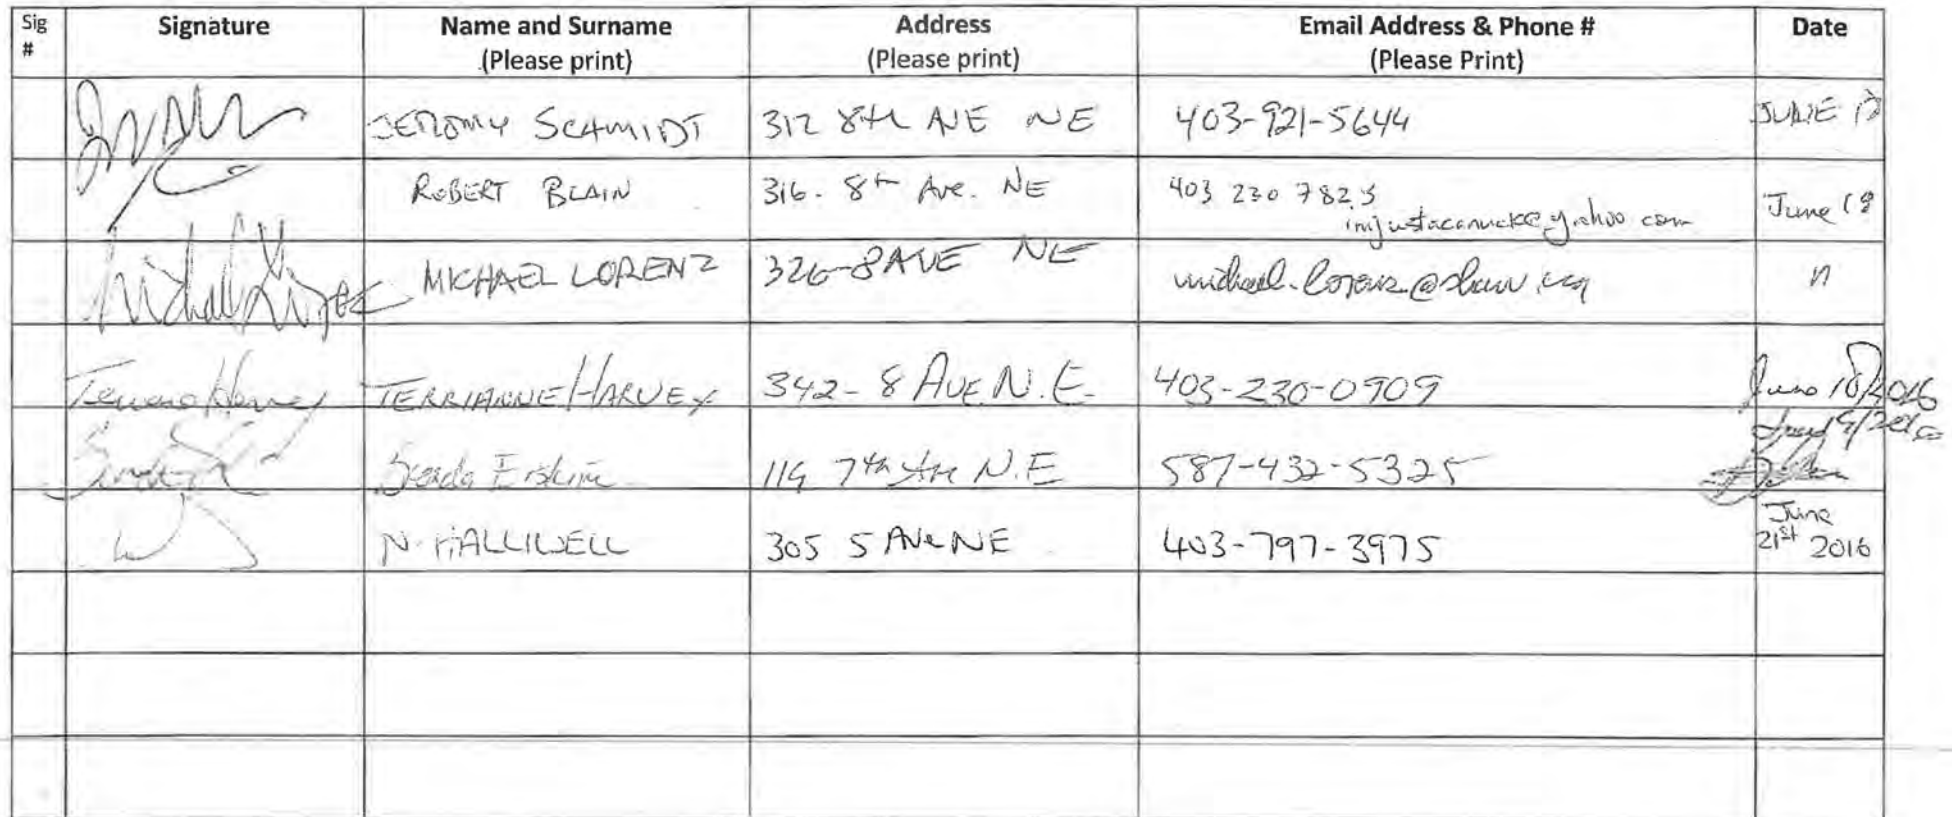 Sig # Signature Name and Surname (Please print) Address (Please print) Email Address & Phone # (Please Print) Date
JEROMY SCHMIDT 312 8th AVE NE 403-921-5644 JUNE
ROBERT BLAIN 316- 8th Ave. NE 403 230 7823 June
imjustacanuck@yahoo com
MICHAEL LORENZ 326-8 AVE NE michael.lorenz@shaw.ca "
TERRIANNE HARVEY 342-8 AVE N.E. 403-230-0909 June 18/2016
Erskine 7th Ave N.E 587-432-5325
N. HALLIWELL 305 5 Ave NE 403-797-3975 June 21st 2016